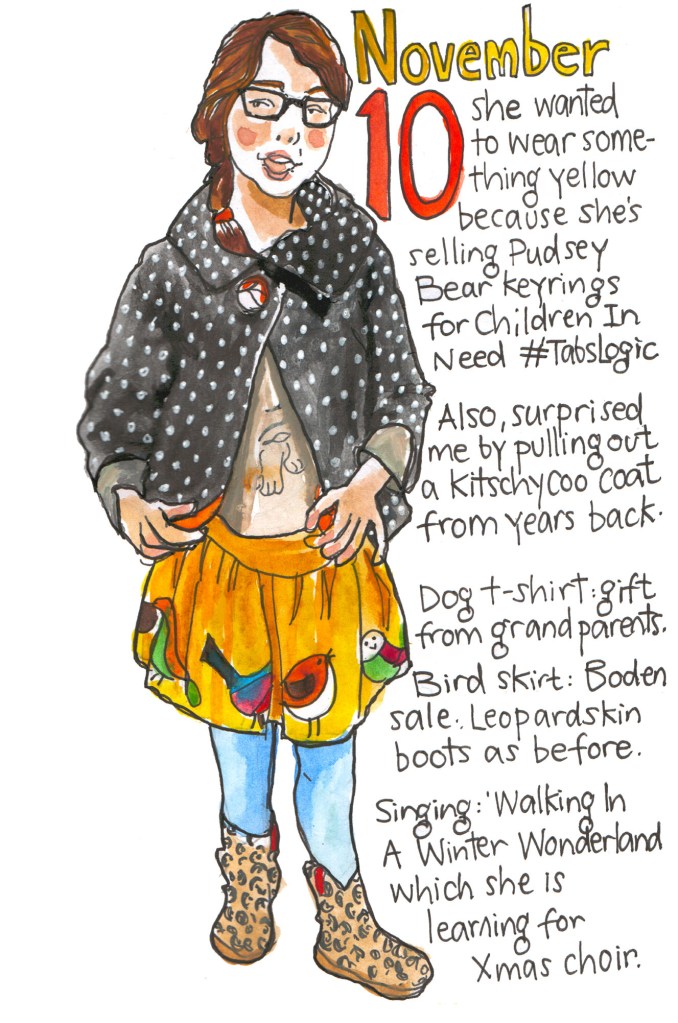 November
10
she wanted
to wear some-
thing yellow
because she's
selling Pudsey
Bear keyrings
for Children In
Need #TabsLogic
Also, surprised
me by pulling out
a Kitschycoo coat
from years back.
Dog t-shirt: gift
from grandparents.
Bird skirt: Boden
sale. Leopardskin
boots as before.
Singing: 'Walking In
A Winter Wonderland
which she is
learning for
Xmas choir.